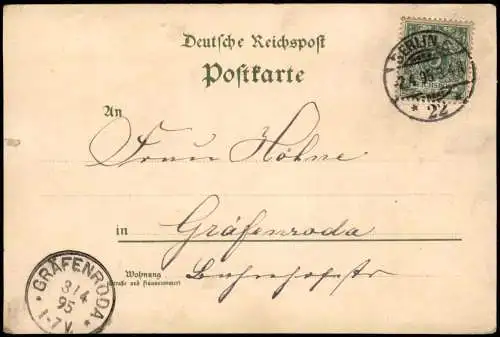 Deutsche Reichspost
Postkarte
BERLIN C.
2.4.95
* 22 *
An
Frau Höhne
in Gräfenroda
Wohnung
(Straße und Hausnummer)
Bahnhofstr
* GRÄFENRODA *
3/4
95
1-7V.